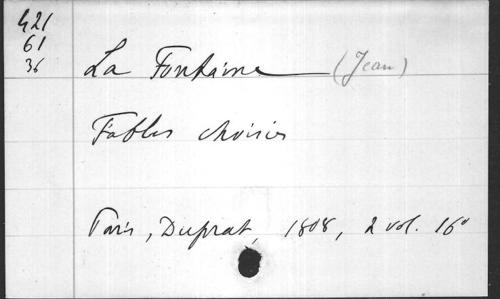 421
61
36
La Fontaine (Jean)
Fables choisies
Paris, Duprat, 1808, 2 vol. 16°